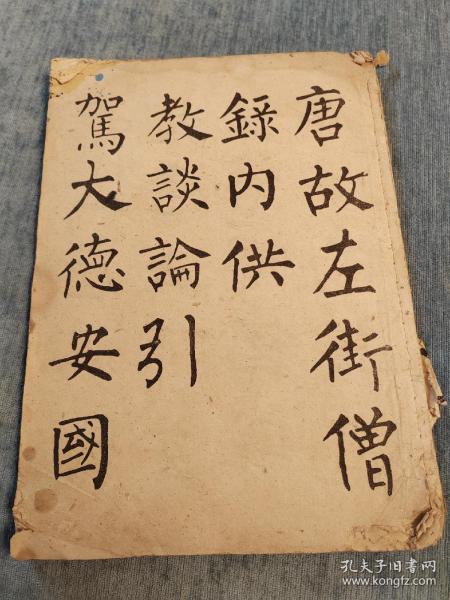 唐故左街僧
錄内供
教談論引
駕大德安國
孔夫子旧书网
www.kongfz.com